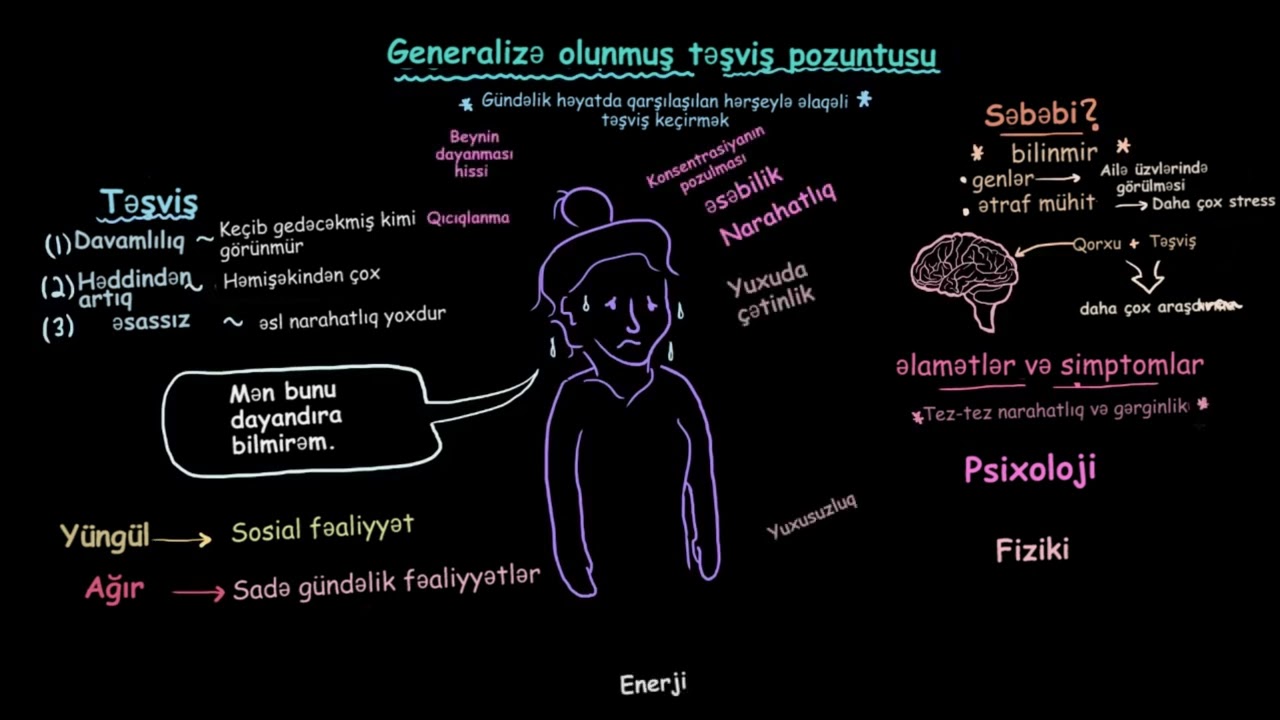 Generalizə olunmuş təşviş pozuntusu
* Gündəlik həyatda qarşılaşılan hərşeylə əlaqəli *
təşviş keçirmək
Təşviş
(1) Davamlılıq ~ Keçib gedəcəkmiş kimi
görünmür
(2) Həddindən ~ Həmişəkindən çox
artıq
(3) əsassız ~ əsl narahatlıq yoxdur
Mən bunu
dayandıra
bilmirəm.
Yüngül → Sosial fəaliyyət
Ağır → Sadə gündəlik fəaliyyətlər
Beynin
dayanması
hissi
Qıcıqlanma
Konsentrasiyanın
pozulması
əsəbilik
Narahatlıq
Yuxuda
çətinlik
Yuxusuzluq
Enerji
Səbəbi?
* bilinmir *
• genlər → Ailə üzvlərində
görülməsi
• ətraf mühit → Daha çox stress
Qorxu + Təşviş
daha çox
əlamətlər və simptomlar
*Tez-tez narahatlıq və gərginlik *
Psixoloji
Fiziki